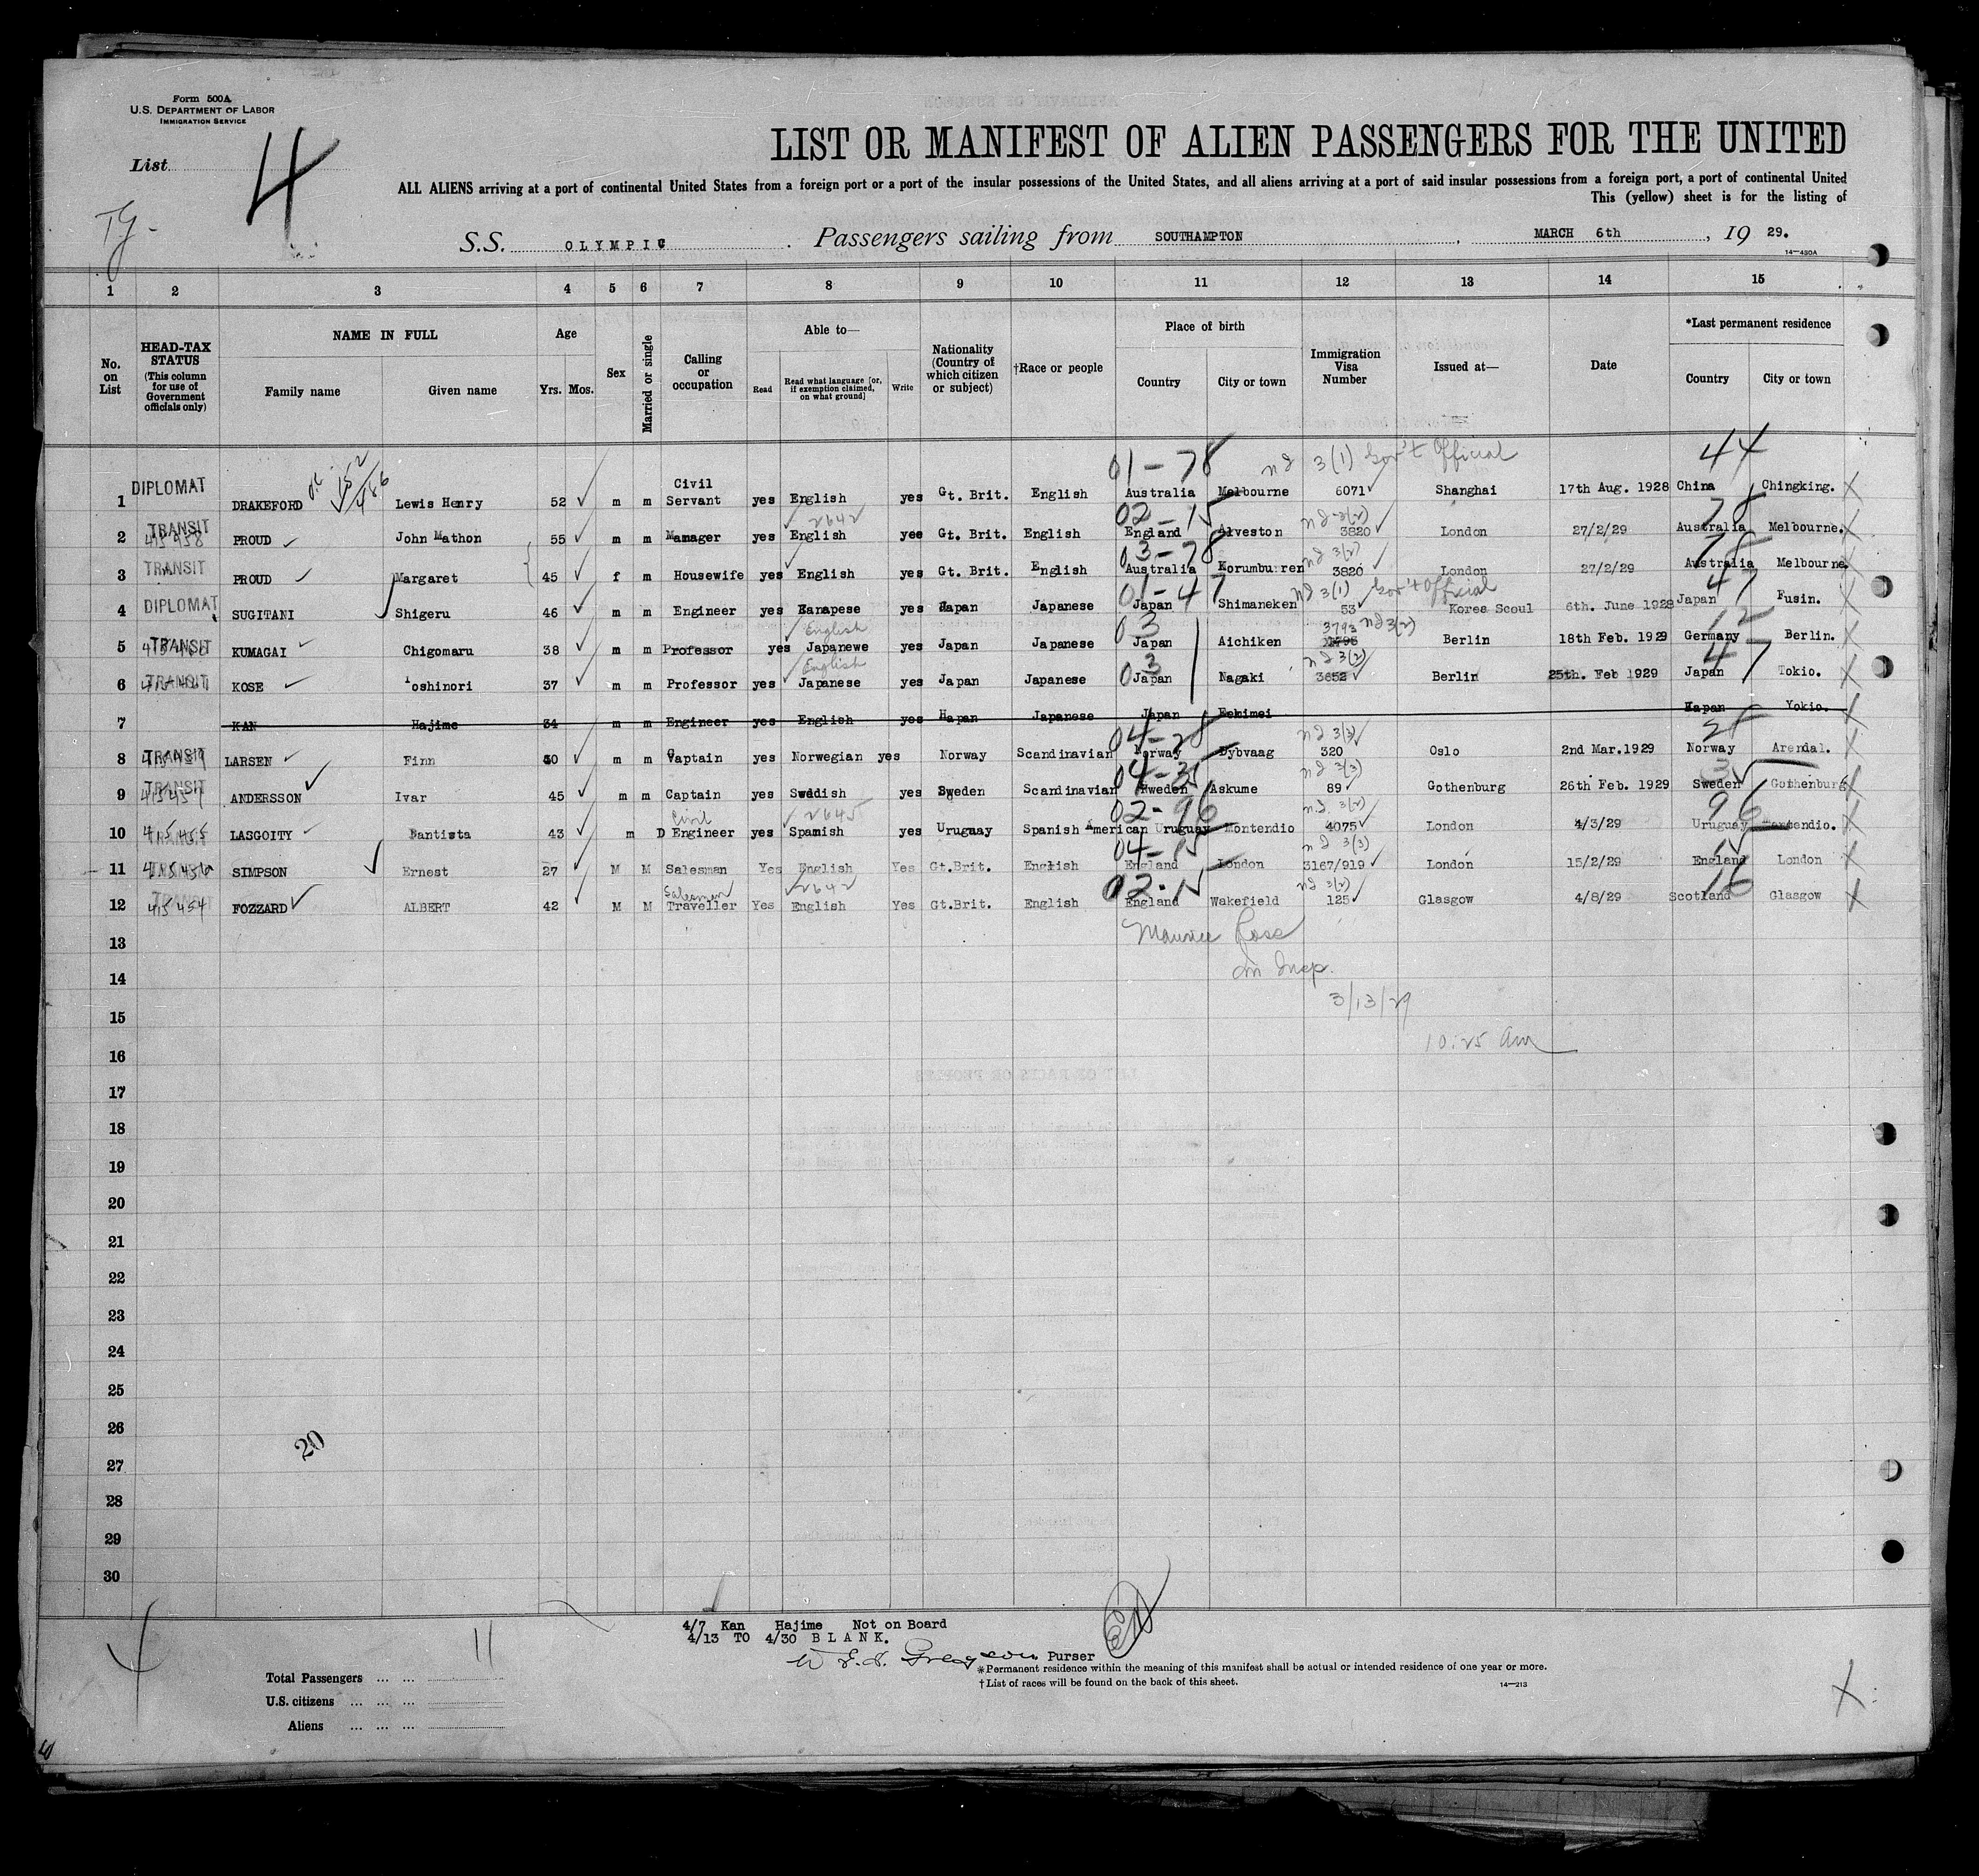 Form 500A
U.S. DEPARTMENT OF LABOR
IMMIGRATION SERVICE
List 4
LIST OR MANIFEST OF ALIEN PASSENGERS FOR THE UNITED
ALL ALIENS arriving at a port of continental United States from a foreign port or a port of the insular possessions of the United States, and all aliens arriving at a port of said insular possessions from a foreign port, a port of continental United
This (yellow) sheet is for the listing of
S.S. OLYMPIC. Passengers sailing from SOUTHAMPTON, MARCH 6th, 19 29.
14-480A
1 2 3 4 5 6 7 8 9 10 11 12 13 14 15
No. on List
HEAD-TAX STATUS (This column for use of Government officials only)
NAME IN FULL Family name Given name
Age Yrs. Mos.
Sex
Married or single
Calling or occupation
Able to— Read Read what language [or, if exemption claimed, on what ground] Write
Nationality (Country of which citizen or subject)
†Race or people
Place of birth Country City or town
Immigration Visa Number
Issued at—
Date
*Last permanent residence Country City or town
01-78 3(1) Gov't Official 44
1 DIPLOMAT DRAKEFORD Lewis Henry 52 m m Civil Servant yes English yes Gt. Brit. English Australia Melbourne 6071 Shanghai 17th Aug. 1928 China Chingking.
02-15 2642 3(2) 78
2 TRANSIT PROUD John Mathon 55 m m Mamager yes English yee Gt. Brit. English England Alveston 3820 London 27/2/29 Australia Melbourne.
03-78 3(2) 78
3 TRANSIT PROUD Margaret 45 f m Housewife yes English yes Gt. Brit. English Australia Korumburren 3820 London 27/2/29 Australia Melbourne.
01-47 3(1) Gov't Official 47
4 DIPLOMAT SUGITANI Shigeru 46 m m Engineer yes Kanapese yes Japan Japanese Japan Shimaneken 53 Korea Seoul 6th. June 1928 Japan Fusin.
English 03 3793 3(2) 12
5 TRANSIT KUMAGAI Chigomaru 38 m m Professor yes Japanewe yes Japan Japanese Japan Aichiken Berlin 18th Feb. 1929 Germany Berlin.
English 03 3(2) 47
6 TRANSIT KOSE Yoshinori 37 m m Professor yes Japanese yes Japan Japanese Japan Nagaki 3652 Berlin 25th. Feb 1929 Japan Tokio.
7 KAN Hajime 34 m m Engineer yes English yes Hapan Japanese Japan Eehimei Kapan Yokio.
04-28 3(3)
8 TRANSIT LARSEN Finn 30 m m Captain yes Norwegian yes Norway Scandinavian Norway Dybvaag 320 Oslo 2nd Mar.1929 Norway Arendal.
04-35 3(3)
9 TRANSIT ANDERSSON Ivar 45 m m Captain yes Swddish yes Sweden Scandinavian Sweden Askume 89 Gothenburg 26th Feb. 1929 Sweden Gothenburg
Civil 2645 02-96 3(2) 96
10 TRANSIT 415455 LASGOITY Bantista 43 m D Engineer yes Spamish yes Urugaay Spanish American Uruguay Montendio 4075 London 4/3/29 Uruguay Montendio.
04-15 3(3) 15
11 TRANSIT 415456 SIMPSON Ernest 27 M M Salesman Yes English Yes Gt.Brit. English England London 3167/919 London 15/2/29 England London
Salesman 2642 02-15 3(2) 16
12 TRANSIT 415454 FOZZARD ALBERT 42 M M Traveller Yes English Yes Gt.Brit. English England Wakefield 125 Glasgow 4/8/29 Scotland Glasgow
13 Maurice Rose
14 Im Insp.
15 3/13/29
16 10:25 am
17
18
19
20
21
22
23
24
25
26
20
27
28
29
30
4/7 Kan Hajime Not on Board
4/13 TO 4/30 BLANK.
Purser
Total Passengers 11
U.S. citizens
Aliens
*Permanent residence within the meaning of this manifest shall be actual or intended residence of one year or more.
†List of races will be found on the back of this sheet.
14-213